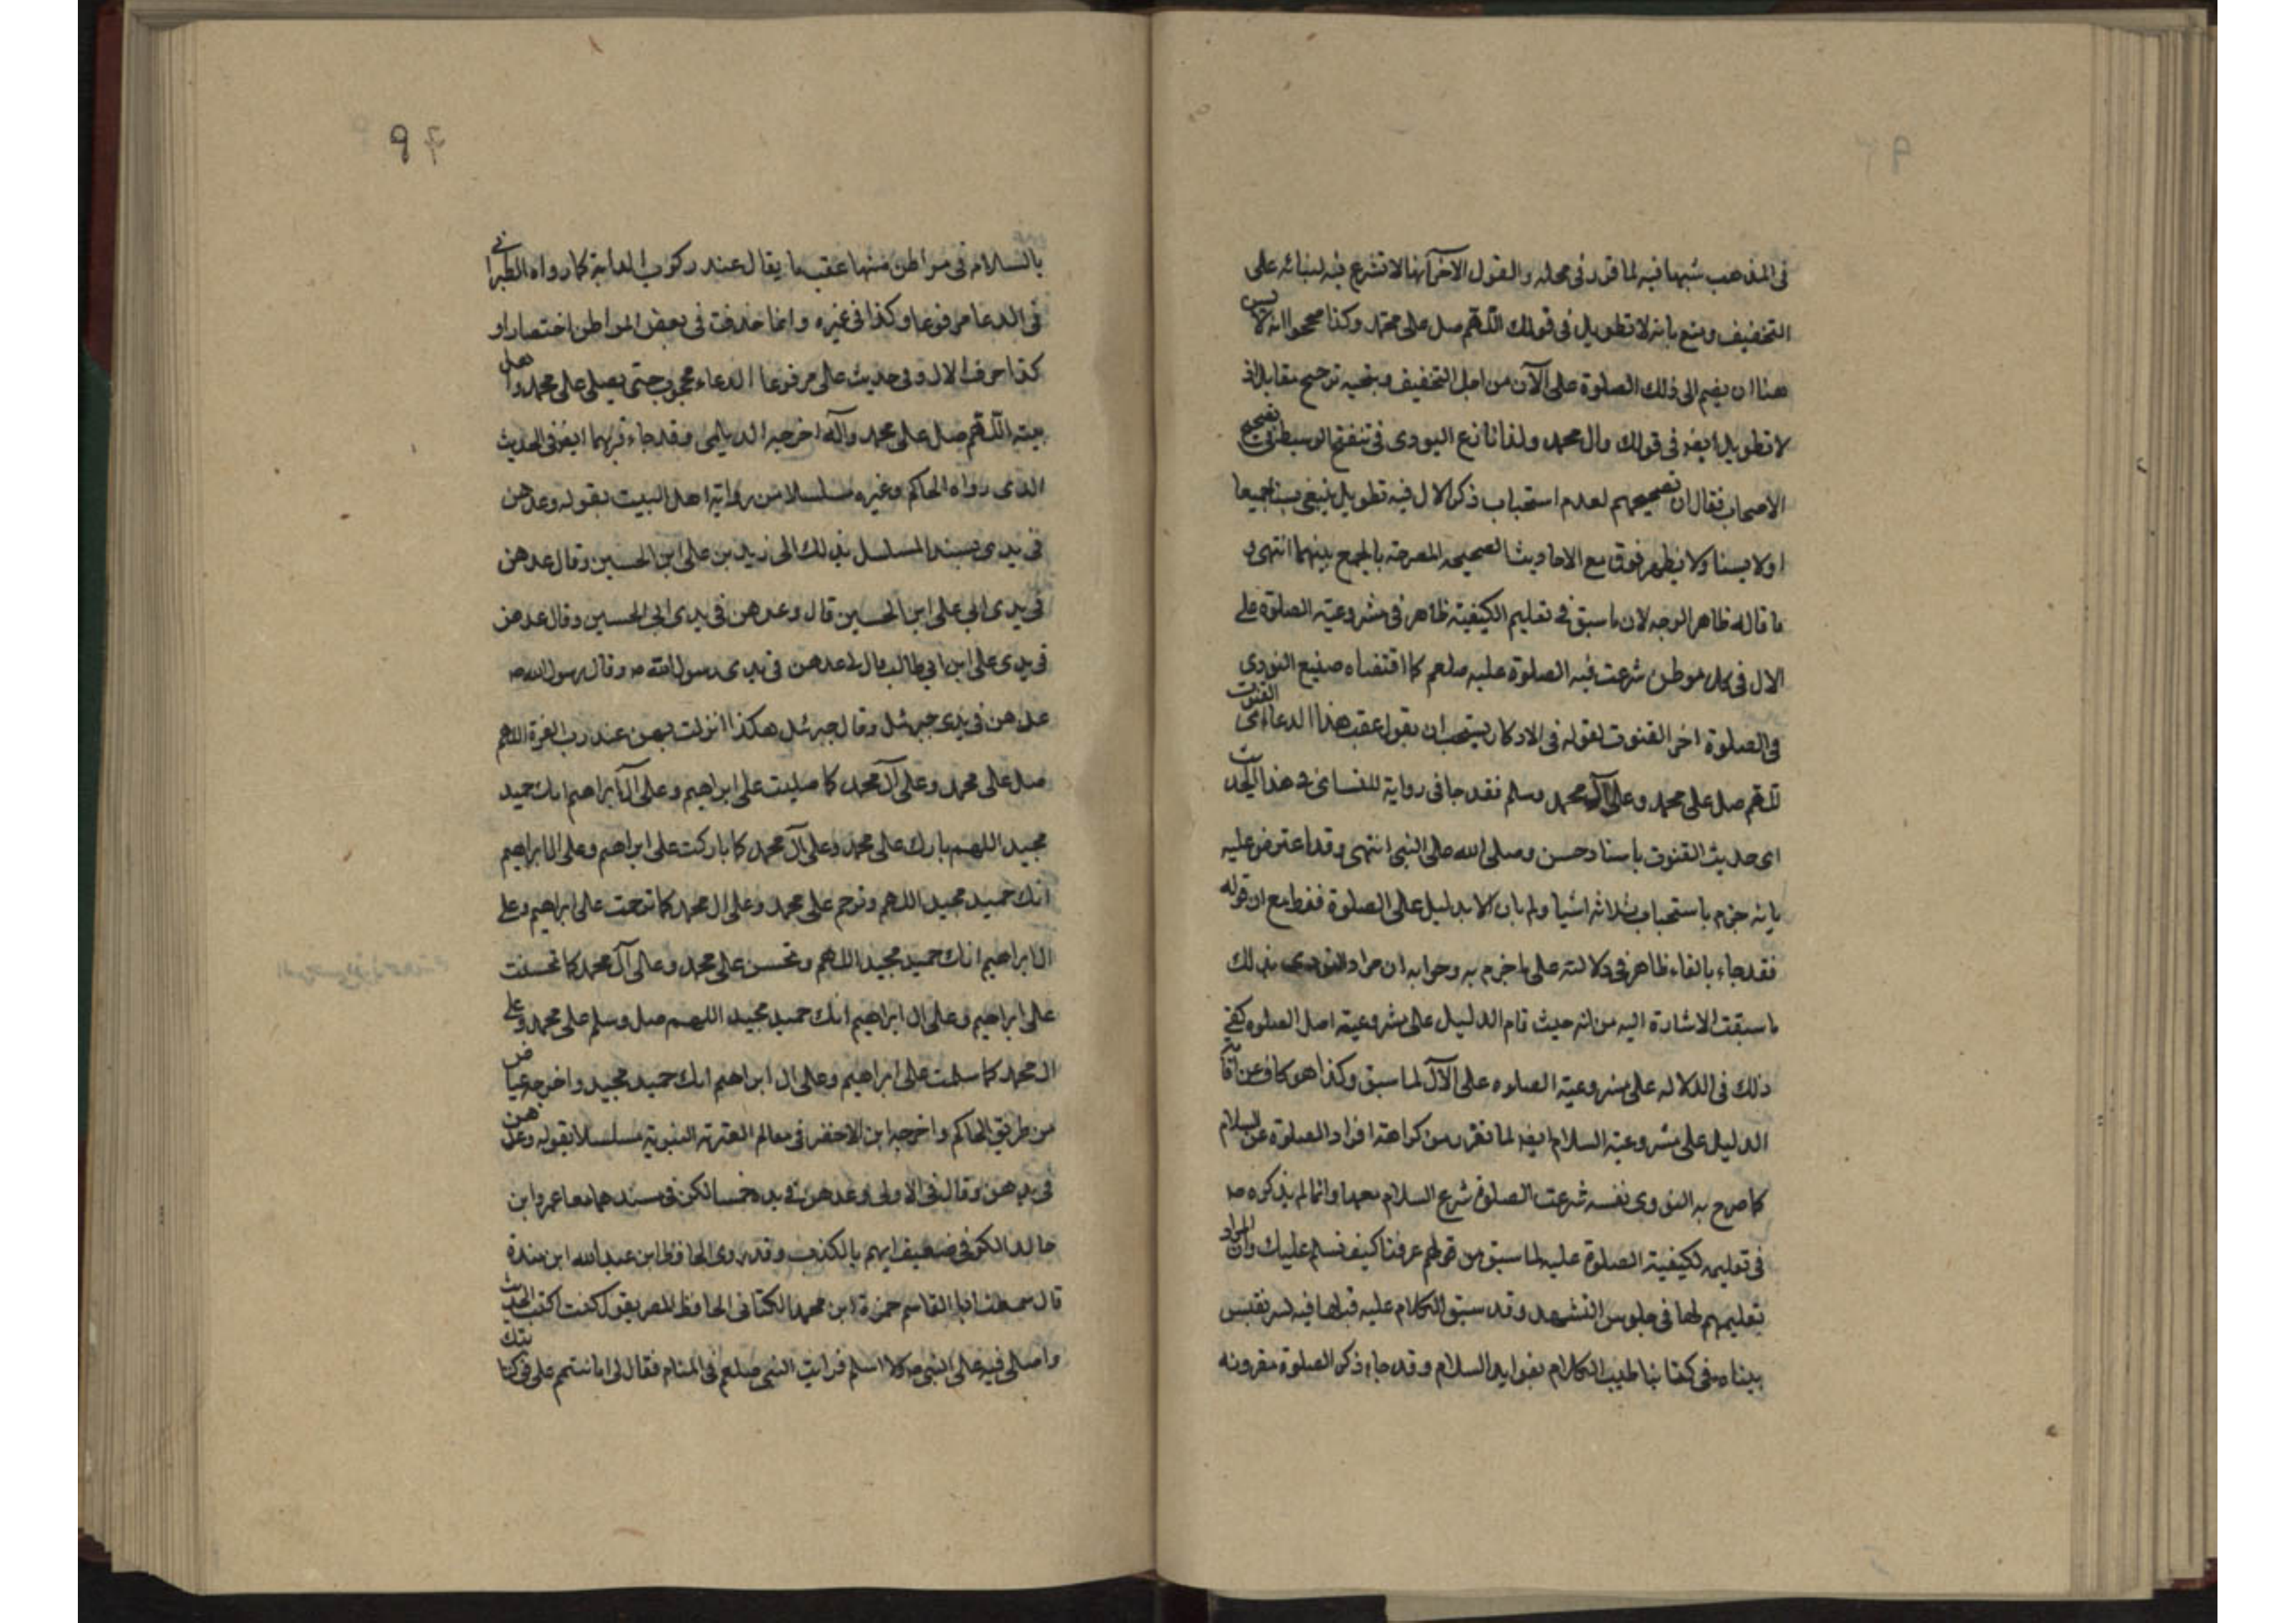 فى المذهب شبهها فيه لما قرر فى محله والقول الاخر انها لا تشرع فيه لبنائه على
التخفيف ومنع بانه لا تطويل فى قولك اللهم صل على محمد وكذا صححوا انه لا يسن
هنا ان يضم الى ذلك الصلوة على الآل من اجل التخفيف ويتجه ترجيح مقابله اذ
لا تطويل ايضا فى قولك وال محمد ولذا نازع النووى فى تنقيح الوسيط فى تصحيح
الاصحاب فقال ان تصحيحهم لعدم استحباب ذكر الال فيه تطويل ينبغى يسنا جميعا
او لا يسنا ولا يظهر فرق مع الاحاديث الصحيحه المصرحة بالجمع بينهما انتهى و
ما قاله ظاهر الوجه لان ما سبق فى تعليم الكيفية ظاهر فى مشروعية الصلوة على
الال فى كل موطن شرعت فيه الصلوة عليه صلعم كما اقتضاه صنيع النووى
فى الصلوة اخر القنوت لقوله فى الاذكار يستحب ان يقول عقب هذا الدعاء اى القنوت
للهم صل على محمد وعلى آل محمد وسلم فقد جا فى رواية للنسائى فى هذا الحديث
اى حديث القنوت باسناد حسن وصلى الله على النبى انتهى وقد اعترض عليه
بانه جزم باستحباب ثلاثه اشيا ولم يات الا بدليل على الصلوة فقط مع ان قوله
فقد جاء بالفاء ظاهر فى دلالته على ما جزم به وجوابه ان مراد النووى بذلك
ما سبقت الاشارة اليه من انه حيث قام الدليل على مشروعية اصل الصلوه كفى
ذلك فى الدلاله على مشروعية الصلوه على الآل لما سبق وكذا هو كاف عن اقامة
الدليل على مشروعية السلام ايضا لما تقرر من كراهة افراد الصلوة عن السلام
كما صرح به النووى نفسه شرعت الصلوة شرع السلام معها وانما لم يذكره ص
فى تعليمه لكيفية الصلوة عليه لما سبق من قولهم عرفنا كيف نسلم عليك وان المراد
تعليمهم لها فى جلوس التشهد وقد سبق الكلام عليه قبلها فيه
بيناه فى كتابنا طيب الكلام بفوايد السلام وقد جاء ذكر الصلوة مقرونه
٩٤
بالسلام فى مواطن منها عقب ما يقال عند ركوب الدابة كما رواه الطبرانى
فى الدعا مرفوعا وكذا فى غيره وانما حذفت فى بعض المواطن اختصارا و
كذا حرف الال وفى حديث على مرفوعا الدعاء محجوب حتى يصلى على محمد واهل
بيته اللهم صل على محمد وآله اخرجه الديلمى وقد جاء ايضا فى الحديث
الذى رواه الحاكم وغيره مسلسلا من رواية اهل البيت بقوله وعدهن
فى يدى بسند المسلسل بذلك الى زيد بن على ابن الحسين وقال عدهن
فى يدى ابى على ابن الحسين قال وعدهن فى يدى ابى الحسين وقال عدهن
فى يدى على ابن ابى طالب قال لى عدهن فى يدى رسول الله ص وقال رسول الله ص
عدهن فى يدى جبرئل وقال جبرئل هكذا انزلت بهن عند رب العزة اللهم
صل على محمد وعلى آل محمد كما صليت على ابراهيم وعلى آل ابراهيم انك حميد
مجيد اللهم بارك على محمد وعلى آل محمد كما باركت على ابراهم وعلى ال ابراهيم
انك حميد مجيد اللهم وترحم على محمد وعلى ال محمد كما ترحت على ابراهيم وعلى
ال ابراهيم انك حميد مجيد اللهم وتحسن على محمد وعلى آل محمد كما تحسنت
على ابراهيم وعلى ال ابراهيم انك حميد مجيد اللهم صل وسلم على محمد وعلى
ال محمد كما سلمت على ابراهيم وعلى ال ابراهم انك حميد مجيد واخرجه عياض
من طريق الحاكم واخرجه ابن الاخضر فى معالم العترة النبوية مسلسلا بقوله وعدهن
فى يدهن وقال فى الاولى وعدهن فى يده خمسا لكن فى سندهما معا عمرو ابن
خالد الكوفى ضعيف ايهم بالكذب وقد روى الحافظ ابن عبد الله ابن مندة
قال سمعت ابا القاسم حمزة ابن محمد الكتانى الحافظ للمصر يقول كنت اكتب الحديث
واصلى فيه على النبى ص ولا اسلم فرايت النبى صلعم فى المنام فقال لى اما تستحم على فى كتابتك